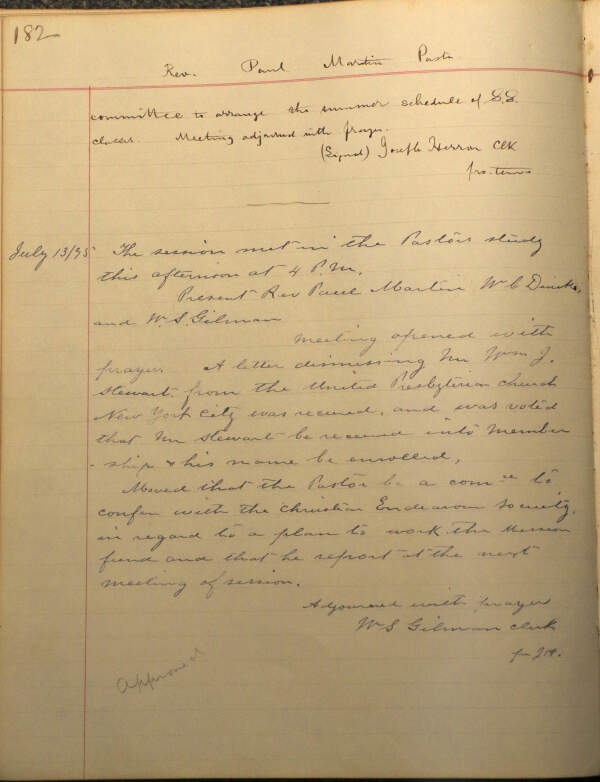 182
Rev. Paul Martin Pastr
committee to arrange the summer schedule of S.S.
classes. Meeting adjourned with prayer.
(Signed) Joseph Herron Clk
pro-tem
July 13/95 The session met in the Pastors study
this afternoon at 4 P.M.
Present Rev Paul Martin W C
and W. S. Gilman
Meeting opened with
prayer. A letter dismissing Mr Wm J.
Stewart, from the United Presbyterian church
New York city was received, and was voted
that Mr Stewart be received into Member
-ship & his name be enrolled,
Moved that the Pastor be a comtee to
confer with the Christian Endeavor Society,
in regard to a plan to work the Mission
fund and that he report at the next
meeting of session.
Adjourned with prayer
W S Gilman clerk
Approved